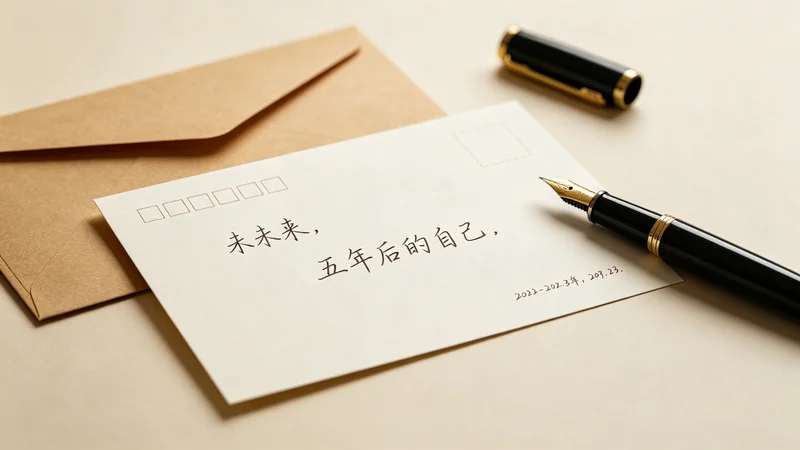 未未来，
五年后的自己，
2022-202.3年，209.23.